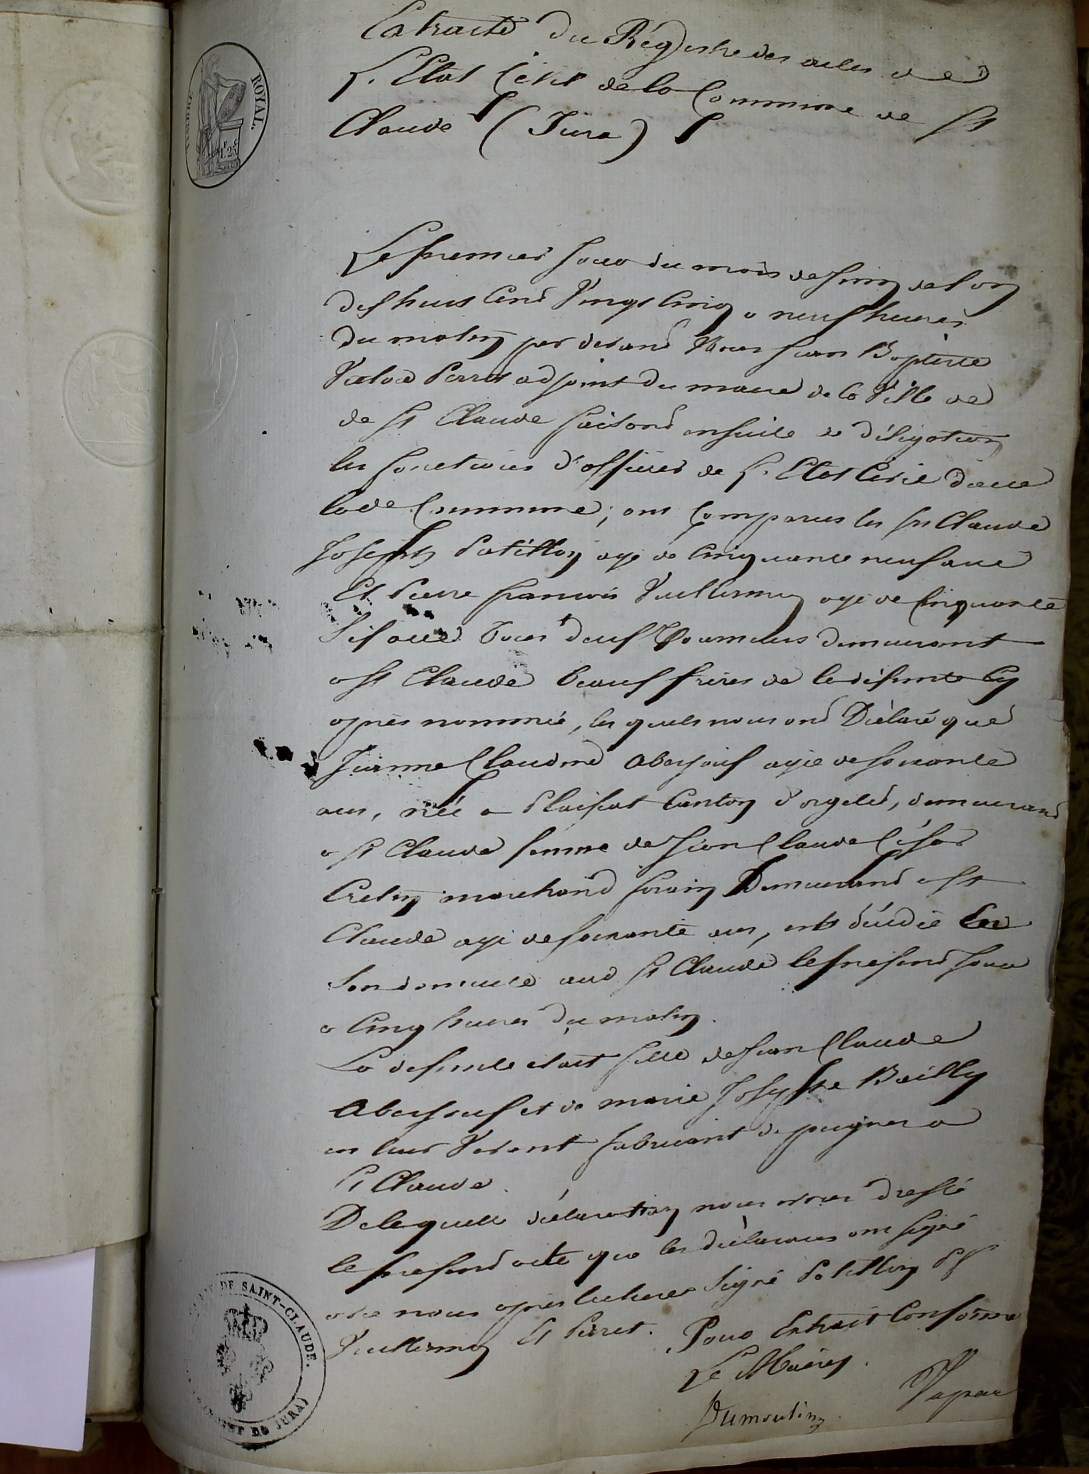 Extrait du Registre des actes de
L'Etat Civil de la Commune de St
Claude (Jura)
TIMBRE ROYAL
1f 25c
Le premier jour du mois de juin de l'an
dix huit cent vingt cinq a neuf heures
du matin par devant Nous Jean Baptiste
Perret adjoint du maire de la Ville de
de St Claude faisant ensuite de déligation
les fonctions d'officier de L'Etat Civil d'icelle
Commune; ont comparus les srs Claude
Joseph Patillon agé de cinquante neuf ans
Et Pierre francois Vuillermoz agé de Cinquante
six ans tous deux Tourneurs demeurant
a St Claude beauf freres de la défunte Cy
après nommée, les quels nous ont Déclaré que
Jeanne Claudine Aberjouf agée de soixante
ans, née a Plaisat Canton d'orgelet, demeurant
a St Claude femme de Jean Claude César
Cretin marchand forain Demeurant a St
Claude agé de soixante ans, est décédée En
son domicile aud St Claude le présent jour
a Cinq heures du matin.
La defunte etait fille de Jean Claude
Aberjouf et de marie Josephte Bailly
en leur Vivant fabricant de peignes a
St Claude.
De laquelle déclaration nous avons dressé
le present acte que les déclarans ont signé
avec nous après lecture Signé Patillon
Vuillermoz Et Perret. Pour Extrait Conforme
Le Maire
Dumoulin
DE SAINT-CLAUDE.
JURA)